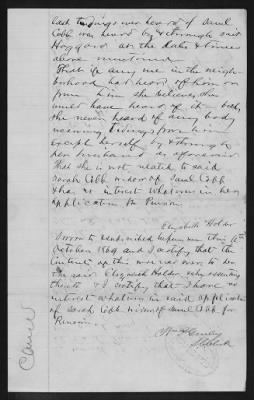 last tidings ever heard of Saml
Cobb was heard by & through said
Hoggard at the dates & times
above mentioned
That if any one in the neigh-
borhood had heard of him or
from him she believes she
would have heard of it - but
she never heard of any body
receiving tidings from him
except herself by & through
her husband as aforesaid
That she is not related to said
Sarah Cobb widow of Saml Cobb
& has no interest whatever in her
application for Pension.
Elizabeth Holder
Sworn to & subscribed before me this
October 1869 and I certify that the
contents of this was read over to
the said Elizabeth Holder before executing
thereto & I certify that I have no
interest whatever in said application
of Sarah Cobb widow of Saml Cobb for
Pension.
Wm
Clerk